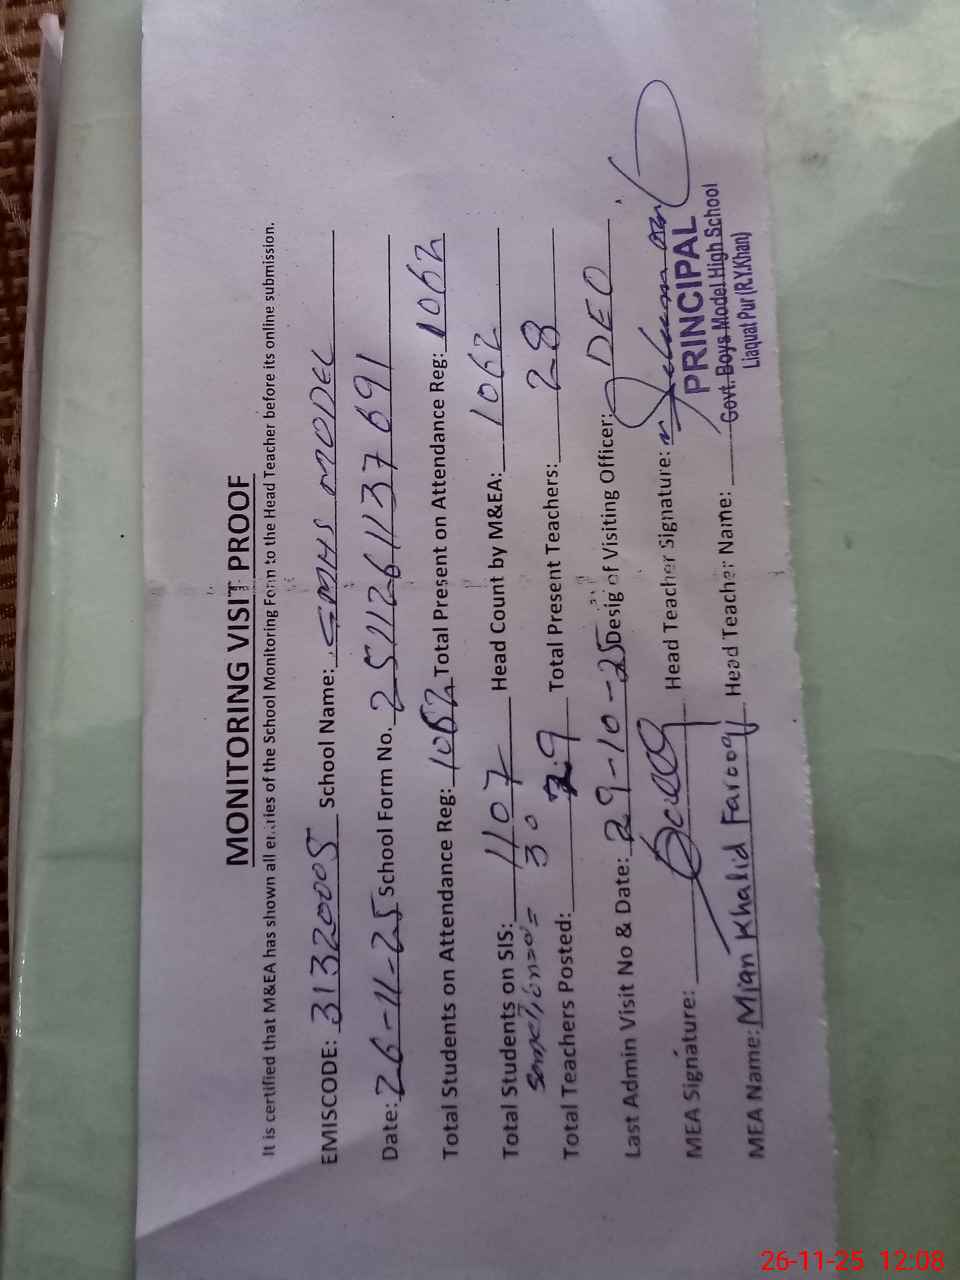 MONITORING VISIT PROOF
It is certified that M&EA has shown all entries of the School Monitoring Form to the Head Teacher before its online submission.
EMISCODE: 31320005 School Name: GMHS MODEL
Date: 26-11-25 School Form No. 2511261137691
Total Students on Attendance Reg: 1062 Total Present on Attendance Reg: 1062
Total Students on SIS: 1107 Head Count by M&EA: 1062
30
Total Teachers Posted: 29 Total Present Teachers: 28
Last Admin Visit No & Date: 29-10-25 Desig of Visiting Officer: DEO
MEA Signature: Head Teacher Signature:
PRINCIPAL
MEA Name: Mian Khalid Farooq Head Teacher Name:
Govt. Boys Model High School
Liaquat Pur (R.Y.Khan)
26-11-25 12:08